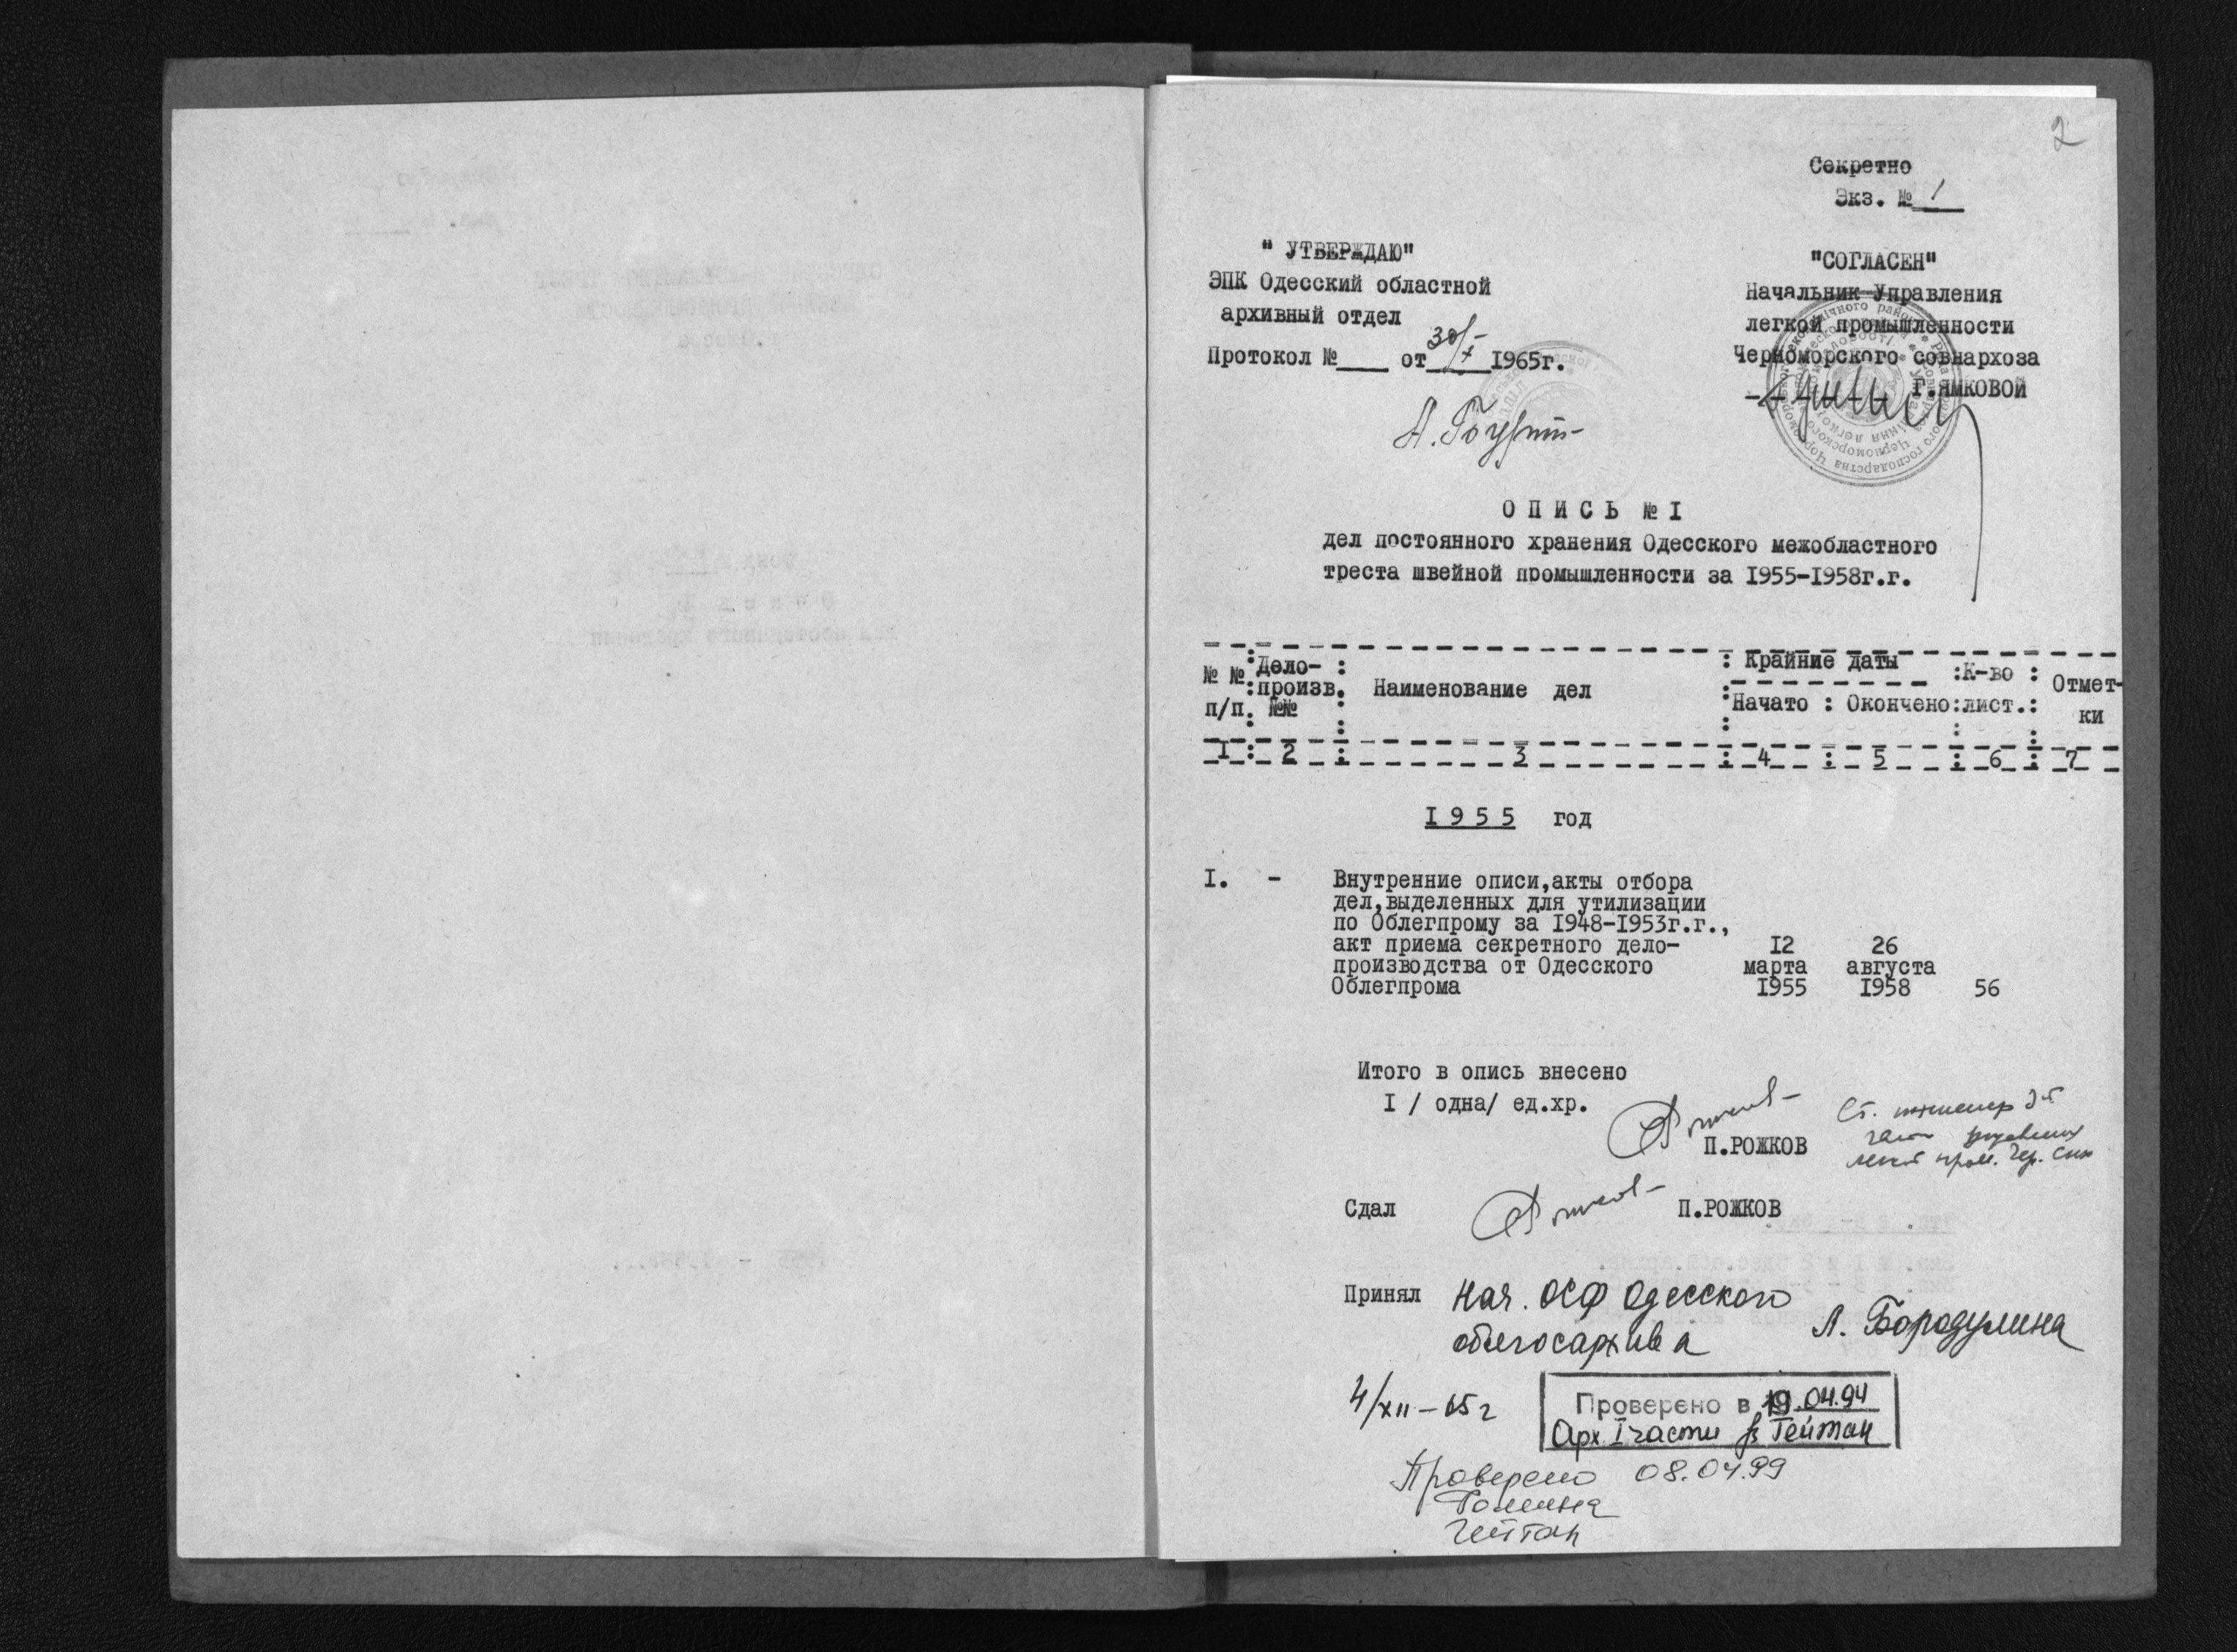 2
Секретно
Экз. № 1
" УТВЕРЖДАЮ"
ЭПК Одесский областной
архивный отдел
Протокол №____ от 30/X 1965г.
"СОГЛАСЕН"
Начальник Управления
легкой промышленности
Черноморского совнархоза
Г.ЯМКОВОЙ
О П И С Ь № I
дел постоянного хранения Одесского межобластного
треста швейной промышленности за 1955-1958г.г.
№ № п/п. : Дело-произв. №№ : Наименование дел : Крайние даты : К-во лист. : Отмет-ки
Начато : Окончено
I : 2 : 3 : 4 : 5 : 6 : 7
I 9 5 5 год
I. - Внутренние описи,акты отбора
дел,выделенных для утилизации
по Облегпрому за 1948-1953г.г.,
акт приема секретного дело- 12 26
производства от Одесского марта августа
Облегпрома 1955 1958 56
Итого в опись внесено
I / одна/ ед.хр.
П.РОЖКОВ
Ст. инженер
Сдал П.РОЖКОВ
Принял Нач. ОСФ Одесского
облгосархива Л. Бородулина
4/XII-65г
Проверено в 19.04.94
Арх. I части Гейтан
Проверено 08.04.99
Гейтан